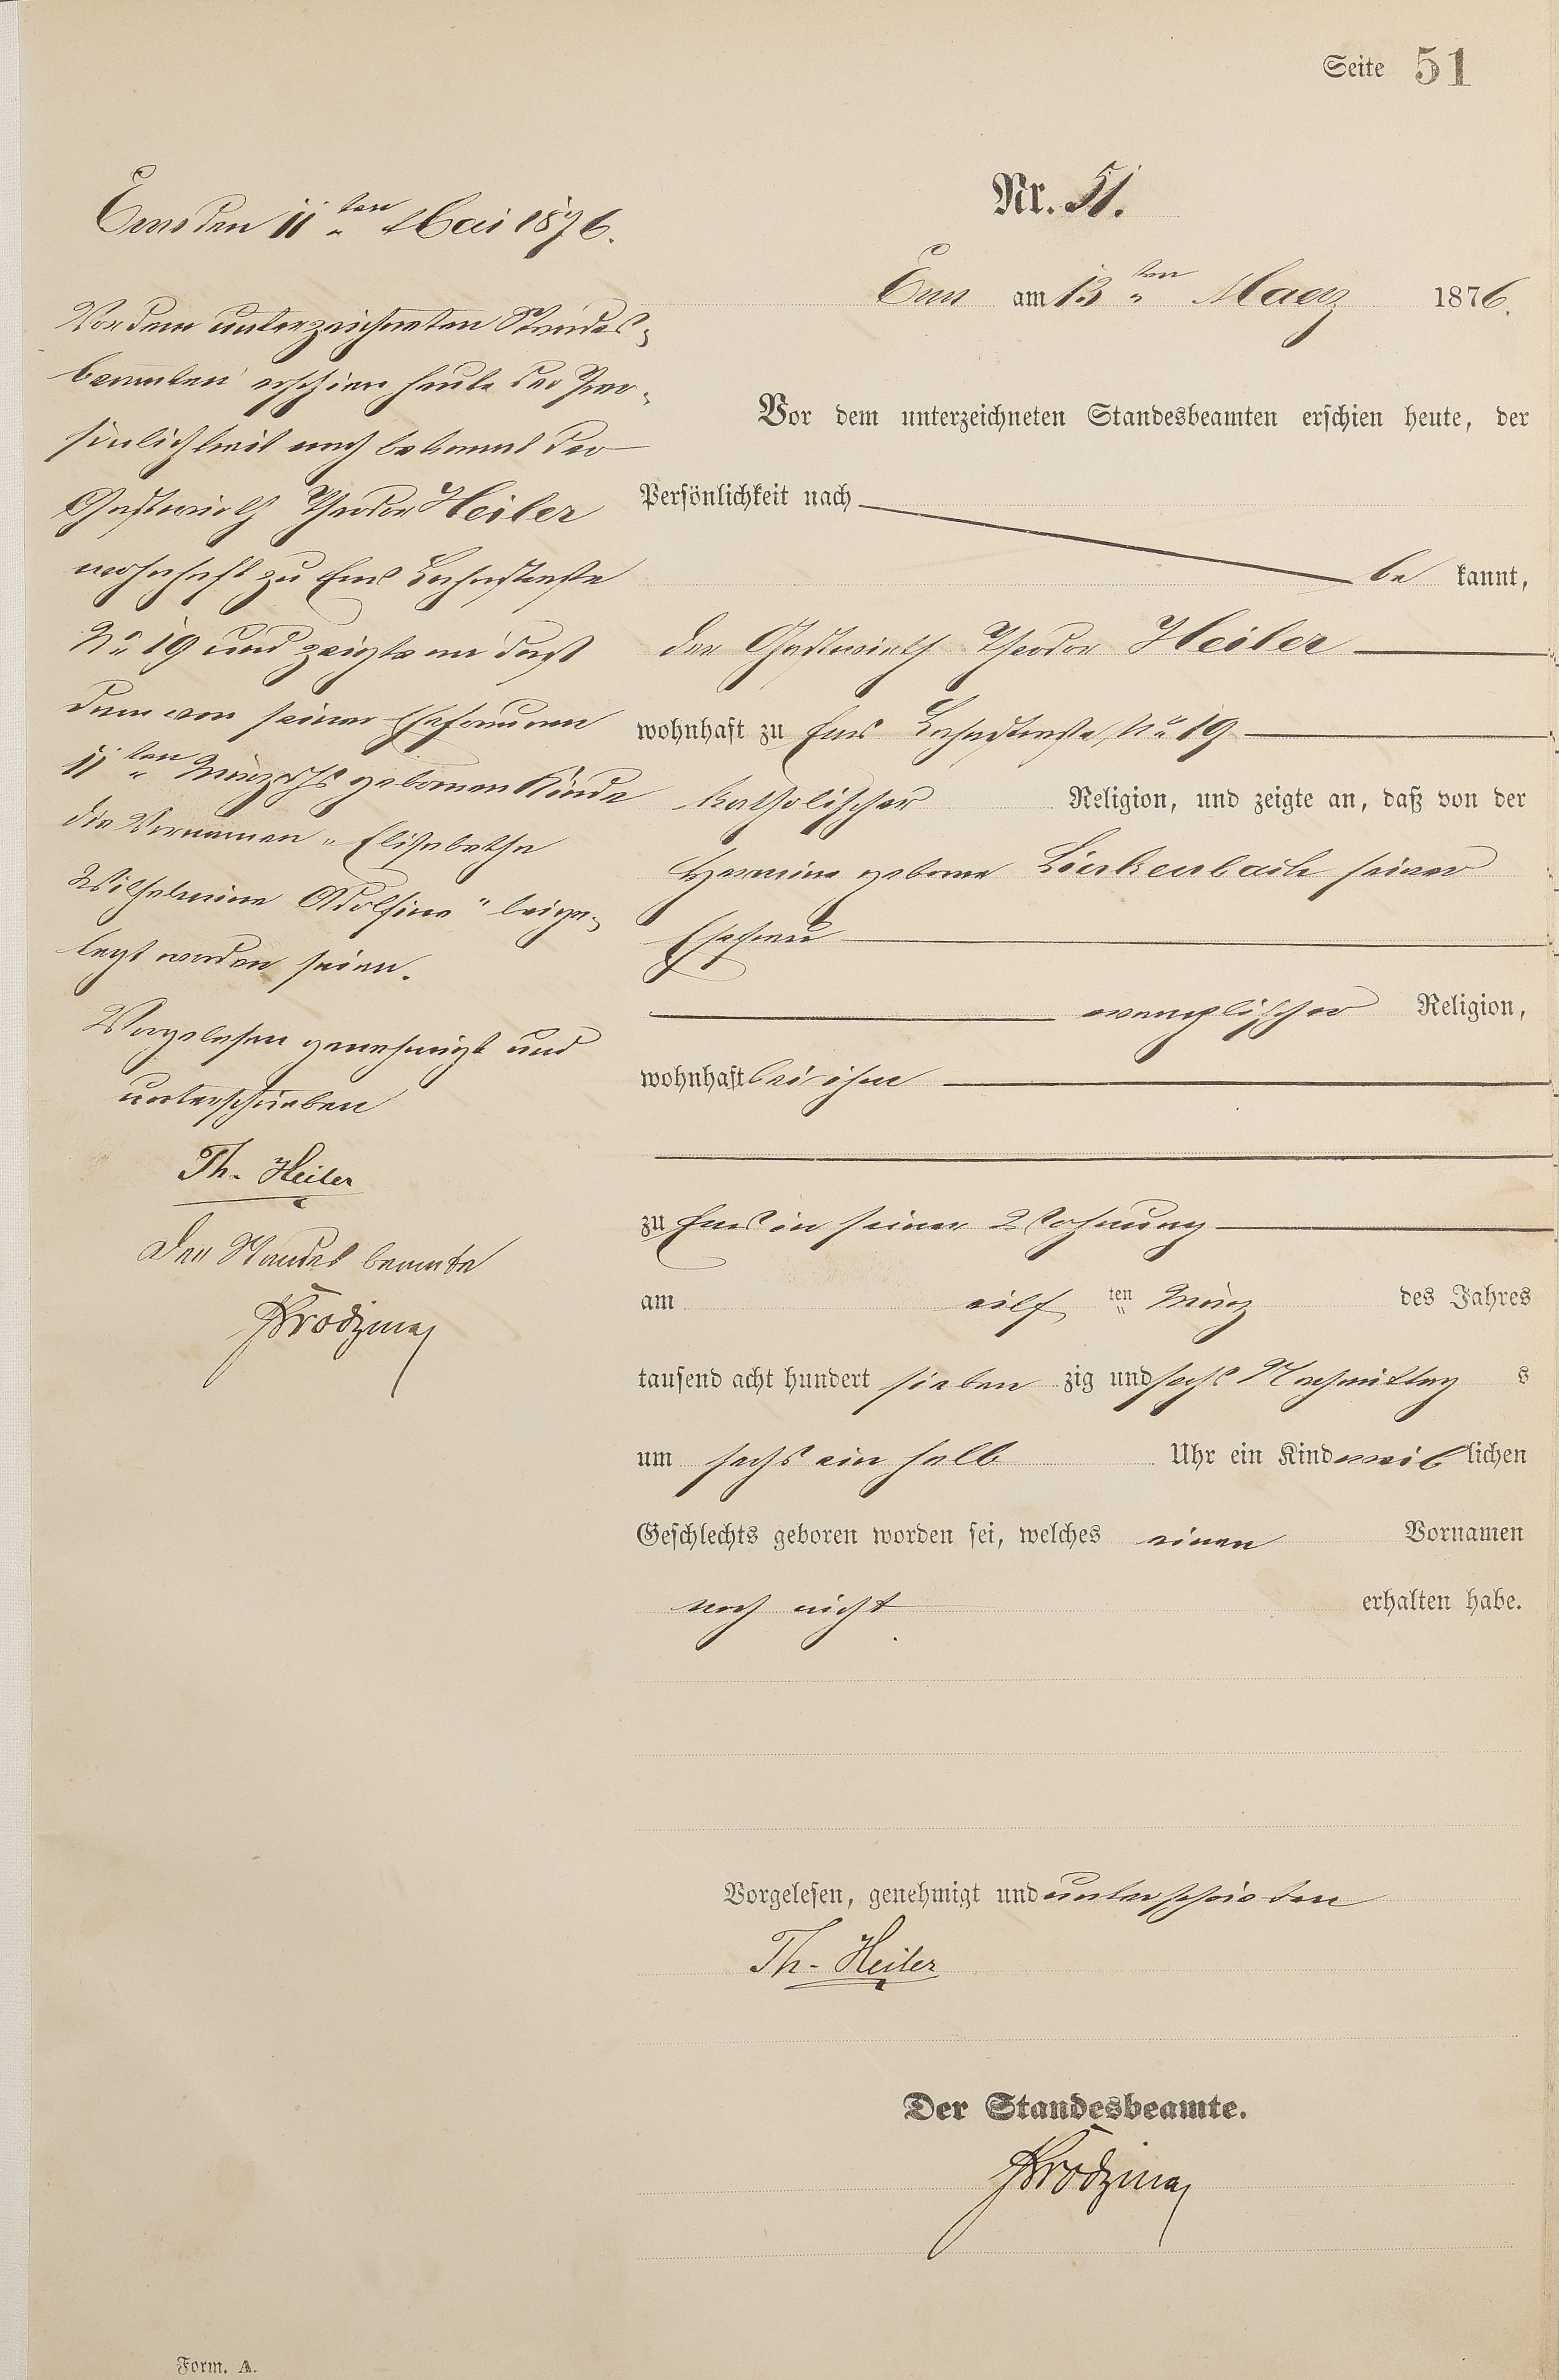 Seite 51
Nr. 51.
Ems am 13ten Maerz 1876.
Vor dem unterzeichneten Standesbeamten erschien heute, der
Persönlichkeit nach
be kannt,
der Gastwirth Theodor Heiler
wohnhaft zu Ems Lahnstraße No 19
katholischer Religion, und zeigte an, daß von der
Hermine geborne Linkenbach seiner
Ehefrau
evanglischer Religion,
wohnhaft bei ihm
zu Ems in seiner Wohnung
am eilf ten März des Jahres
tausend acht hundert sieben zig und sechs Nachmittag s
um sechs ein halb Uhr ein Kind weib lichen
Geschlechts geboren worden sei, welches einen Vornamen
noch nicht erhalten habe.
Vorgelesen, genehmigt und unterschrieben
Th. Heiler
Der Standesbeamte.
Ems den 11ten Mai 1876.
Vor dem unterzeichneten Standes-
beamten erschien heute der Per-
sönlichkeit nach bekannt der
Gastwirth Theodor Heiler
wohnhaft zu Ems Lahnstraße
No 19 und zeigte an daß
dem von seiner Ehefrau am
11ten März dJs gebornen Kinde
die Vornamen "Elisabetha
Wilhelmine Adolfine" beige-
legt worden seien.
Vorgelesen genehmigt und
unterschrieben
Th. Heiler
Der Standesbeamte
Form. A.